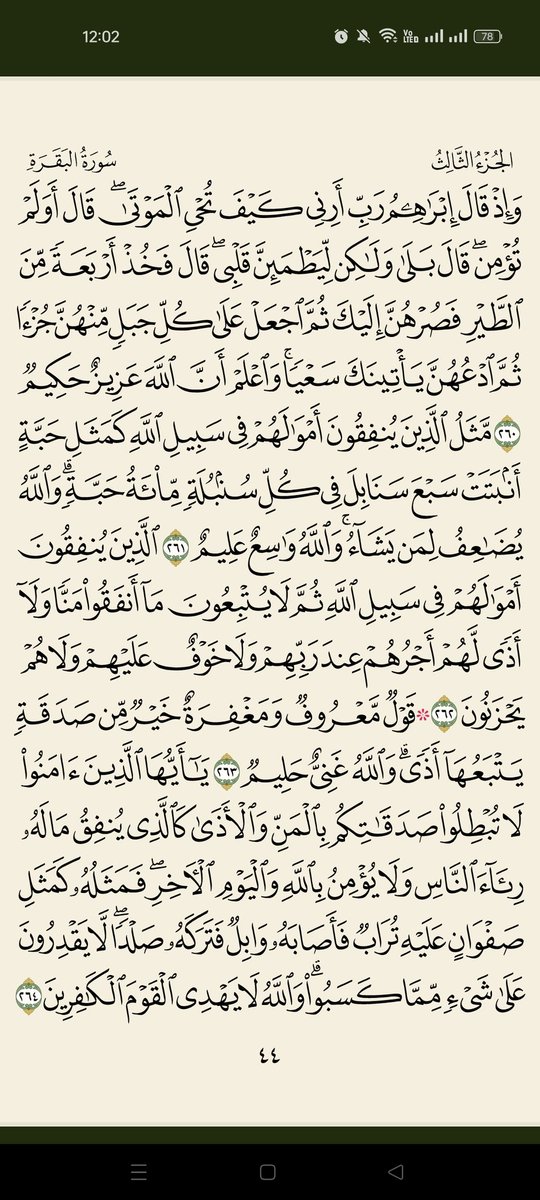 12:02 Vo LTED 78
الجُزْءُ الثَّالِثُ سُورَةُ البَقَرَةِ
وَإِذْ قَالَ إِبْرَٰهِـۧمُ رَبِّ أَرِنِي كَيْفَ تُحْيِ ٱلْمَوْتَىٰۖ قَالَ أَوَلَمْ
تُؤْمِنۖ قَالَ بَلَىٰ وَلَٰكِن لِّيَطْمَئِنَّ قَلْبِيۖ قَالَ فَخُذْ أَرْبَعَةً مِّنَ
ٱلطَّيْرِ فَصُرْهُنَّ إِلَيْكَ ثُمَّ ٱجْعَلْ عَلَىٰ كُلِّ جَبَلٍ مِّنْهُنَّ جُزْءًا
ثُمَّ ٱدْعُهُنَّ يَأْتِينَكَ سَعْيًاۚ وَٱعْلَمْ أَنَّ ٱللَّهَ عَزِيزٌ حَكِيمٌ
٢٦٠ مَّثَلُ ٱلَّذِينَ يُنفِقُونَ أَمْوَٰلَهُمْ فِي سَبِيلِ ٱللَّهِ كَمَثَلِ حَبَّةٍ
أَنۢبَتَتْ سَبْعَ سَنَابِلَ فِي كُلِّ سُنۢبُلَةٍ مِّا۟ئَةُ حَبَّةٍۗ وَٱللَّهُ
يُضَٰعِفُ لِمَن يَشَآءُۚ وَٱللَّهُ وَٰسِعٌ عَلِيمٌ ٢٦١ ٱلَّذِينَ يُنفِقُونَ
أَمْوَٰلَهُمْ فِي سَبِيلِ ٱللَّهِ ثُمَّ لَا يُتْبِعُونَ مَآ أَنفَقُوا۟ مَنًّا وَلَآ
أَذًى لَّهُمْ أَجْرُهُمْ عِندَ رَبِّهِمْ وَلَا خَوْفٌ عَلَيْهِمْ وَلَا هُمْ
يَحْزَنُونَ ٢٦٢ * قَوْلٌ مَّعْرُوفٌ وَمَغْفِرَةٌ خَيْرٌ مِّن صَدَقَةٍ
يَتْبَعُهَآ أَذًىۗ وَٱللَّهُ غَنِيٌّ حَلِيمٌ ٢٦٣ يَٰٓأَيُّهَا ٱلَّذِينَ ءَامَنُوا۟
لَا تُبْطِلُوا۟ صَدَقَٰتِكُم بِٱلْمَنِّ وَٱلْأَذَىٰ كَٱلَّذِي يُنفِقُ مَالَهُۥ
رِئَآءَ ٱلنَّاسِ وَلَا يُؤْمِنُ بِٱللَّهِ وَٱلْيَوْمِ ٱلْأٓخِرِۖ فَمَثَلُهُۥ كَمَثَلِ
صَفْوَانٍ عَلَيْهِ تُرَابٌ فَأَصَابَهُۥ وَابِلٌ فَتَرَكَهُۥ صَلْدًاۖ لَّا يَقْدِرُونَ
عَلَىٰ شَيْءٍ مِّمَّا كَسَبُوا۟ۗ وَٱللَّهُ لَا يَهْدِي ٱلْقَوْمَ ٱلْكَٰفِرِينَ ٢٦٤
٤٤